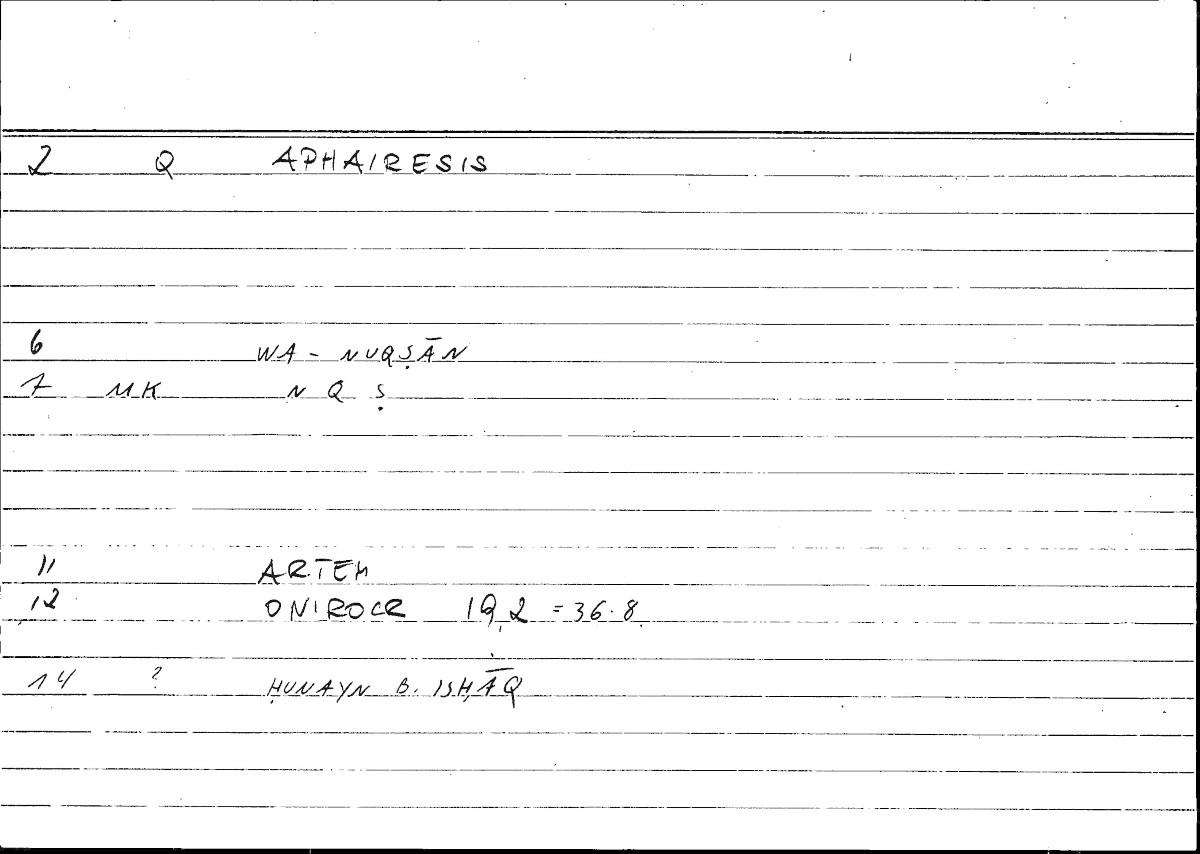 2 Q APHAIRESIS
6 WA - NUQṢĀN
7 MK N Q Ṣ
11 ARTEM
12 ONIROCR 19,2 = 36.8
14 ? ḤUNAYN B. ISḤĀQ